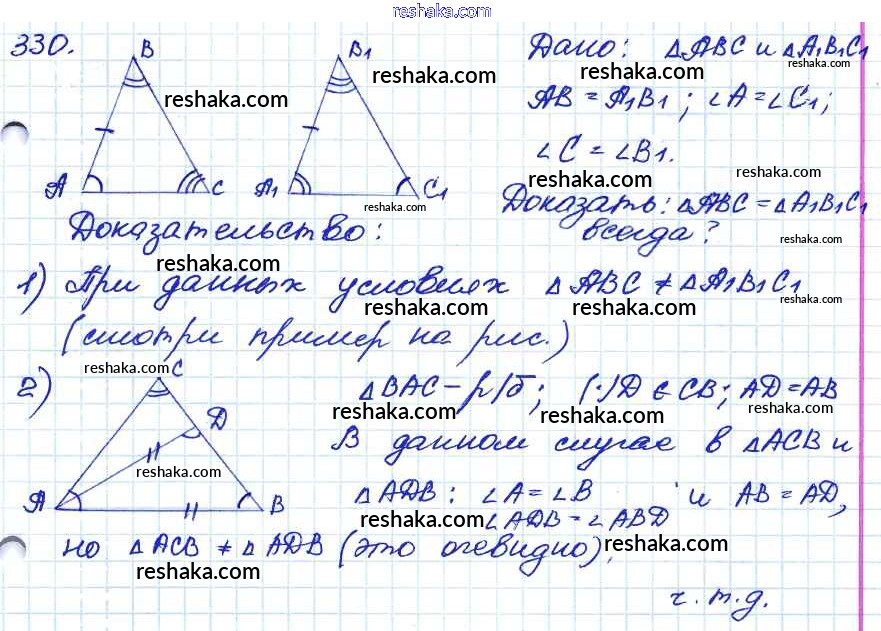 reshaka.com
330.
B
B₁
Дано: △ABC и △A₁B₁C₁
reshaka.com
reshaka.com
reshaka.com
reshaka.com
AB = A₁B₁; ∠A = ∠C₁;
∠C = ∠B₁.
reshaka.com
reshaka.com
A
C
A₁
C₁
reshaka.com
Доказать: △ABC = △A₁B₁C₁
всегда?
reshaka.com
Доказательство:
reshaka.com
1) При данных условиях △ABC ≠ △A₁B₁C₁
reshaka.com
reshaka.com
reshaka.com
(смотри пример на рис.)
reshaka.com
2)
C
△BAC – р/б; (·)D ∈ CB; AD = AB
reshaka.com
reshaka.com
reshaka.com
D
В данном случае в △ACB и
reshaka.com
A
B
△ADB: ∠A = ∠B и AB = AD,
reshaka.com
∠ADB = ∠ABD
но △ACB ≠ △ADB (это очевидно),
reshaka.com
reshaka.com
ч.т.д.